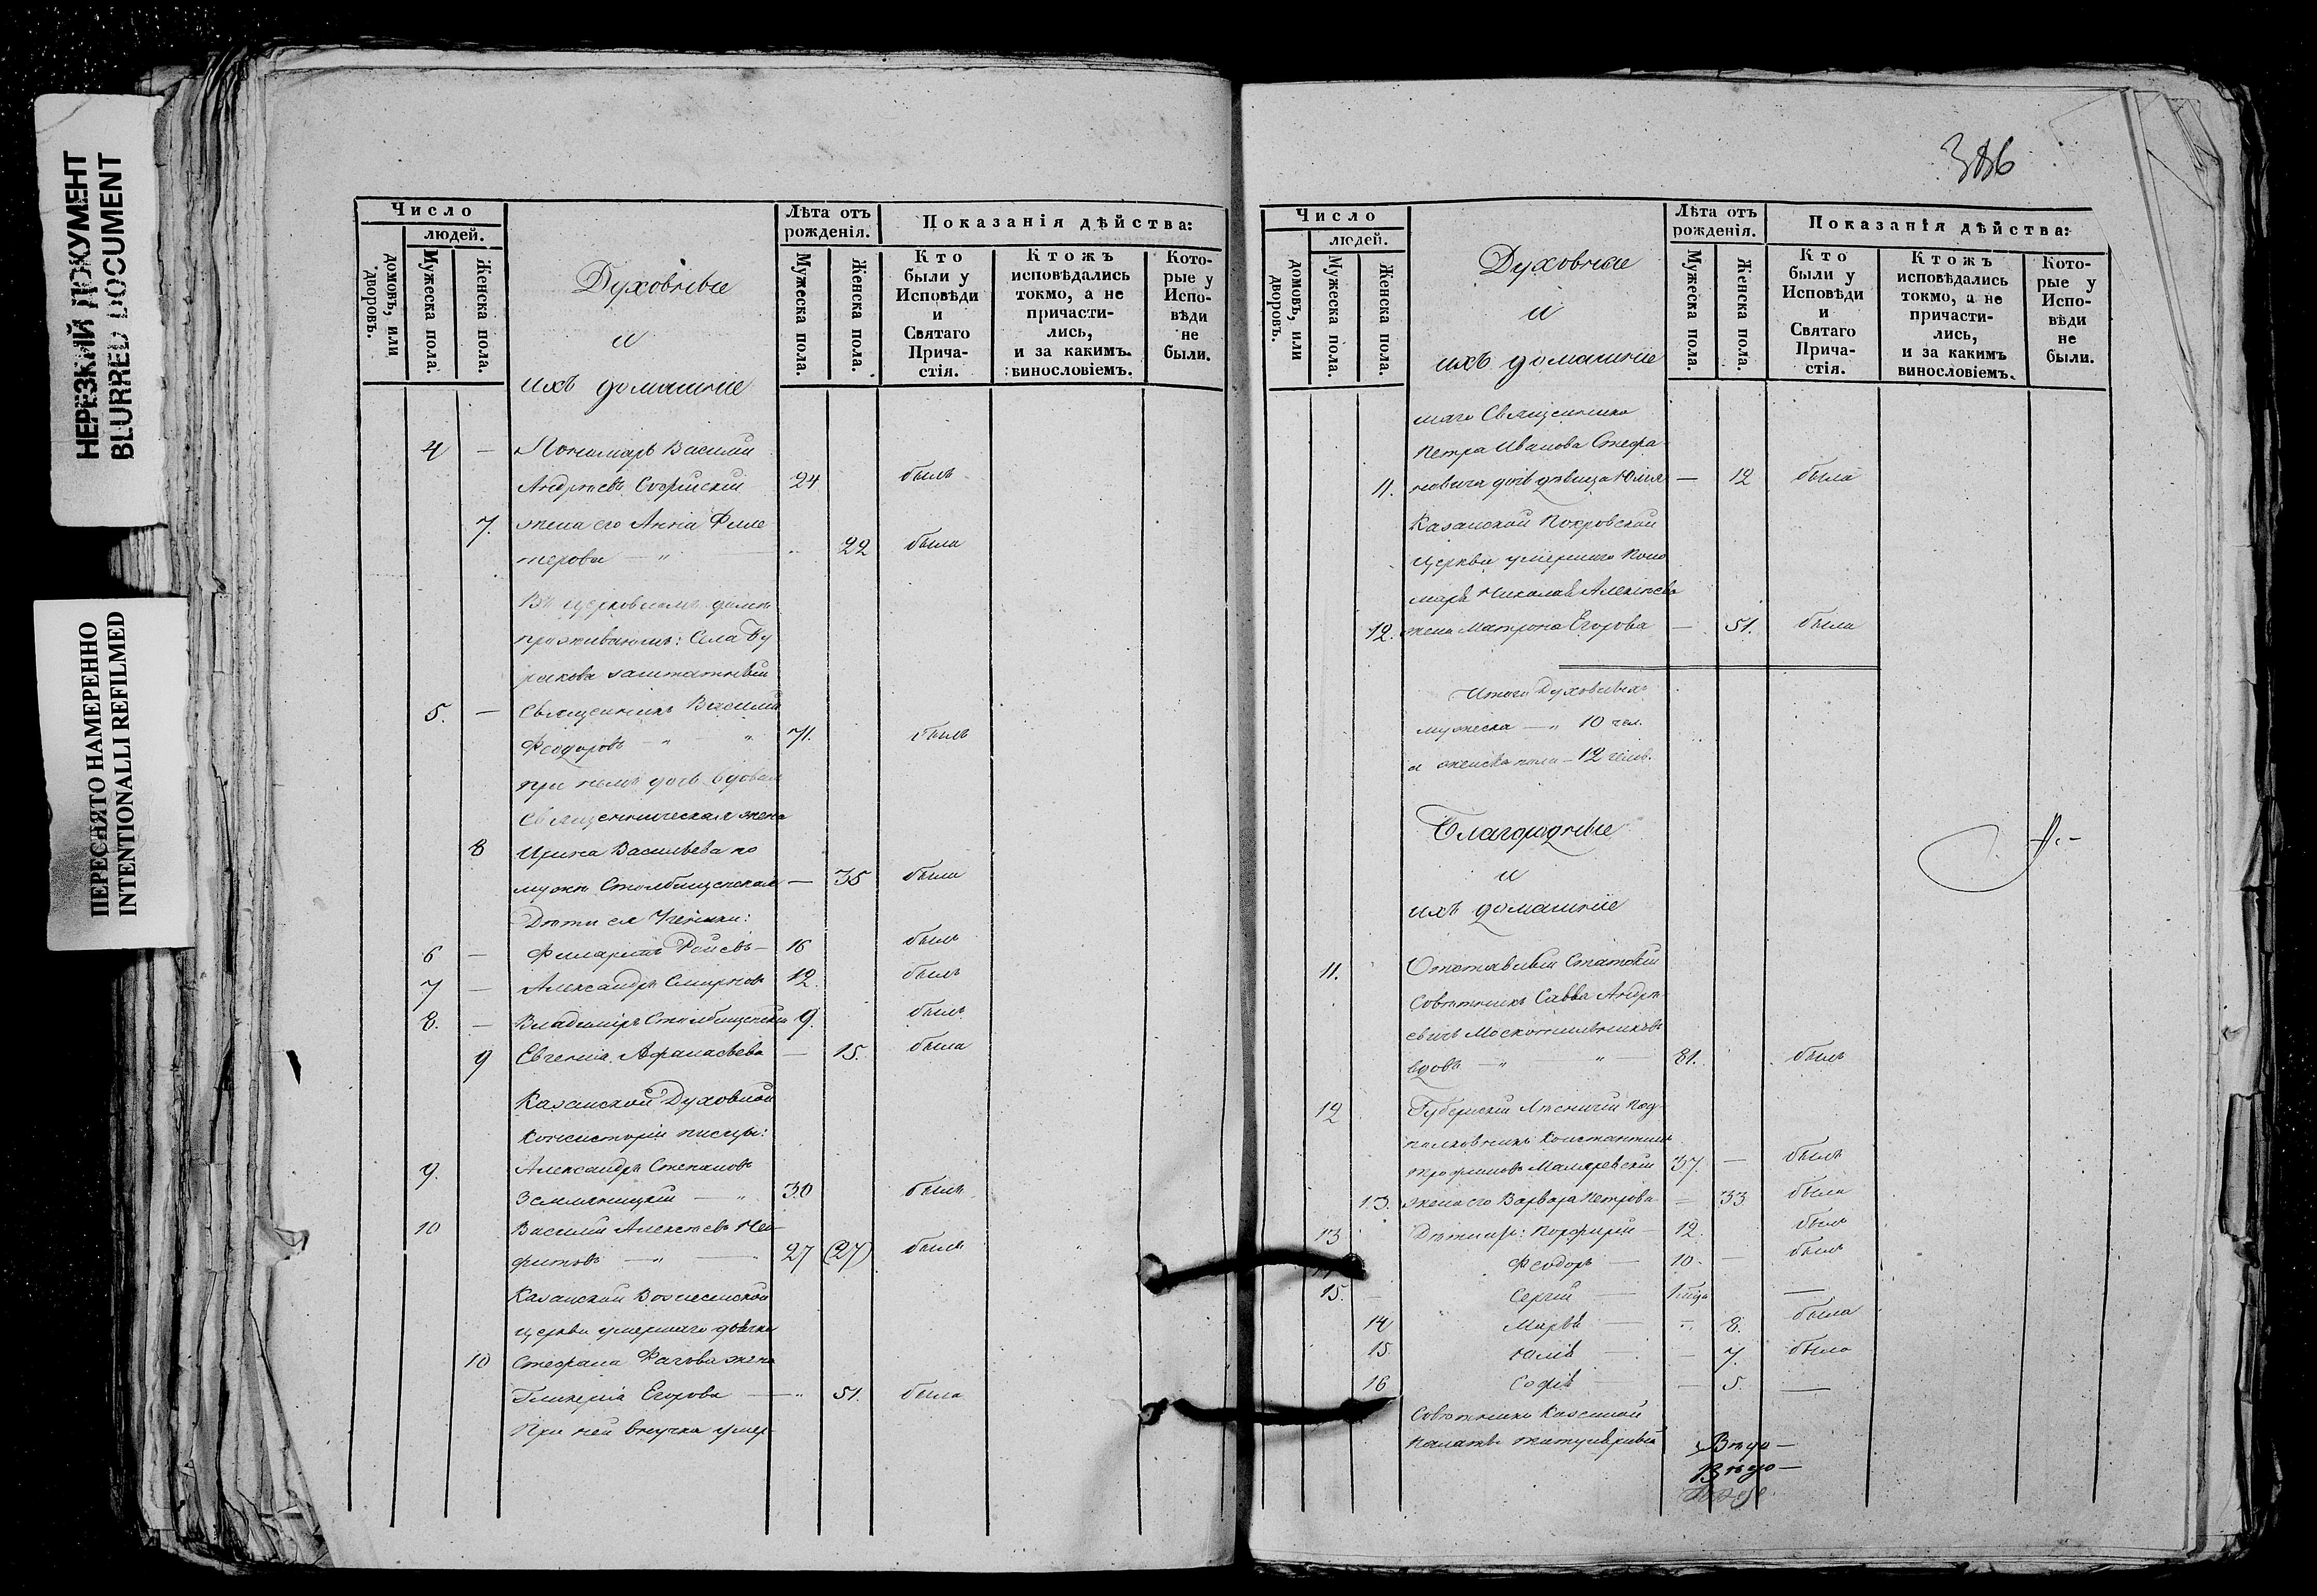 НЕРЕЗКИЙ ДОКУМЕНТ
BLURRED DOCUMENT
ПЕРЕСНЯТО НАМЕРЕННО
INTENTIONALLI REFILMED
Число
людей.
домовъ, или дворовъ.
Мужеска пола.
Женска пола.
Духовные
и
ихъ домашніе
Лѣта отъ рожденія.
Мужеска пола.
Женска пола.
Показанія дѣйства:
Кто были у Исповѣди и Святаго Прича-стія.
Ктожъ исповѣдались токмо, а не причасти-лись, и за какимъ винословіемъ.
Кото-рые у Испо-вѣди не были.
4 — Пономарь Василій
Андреевъ Софійскій 24 былъ
7. жена его Анна Филе
терова — „ — „ 22 была
Въ церковномъ домѣ
проживаютъ: Села Бу
ракова заштатный
5. — Священникъ Василій
Феодоровъ — „ — „ 71. былъ
при немъ дочь вдовая
Священническая жена
8 Ирина Васильева по
мужѣ Столбищенская — 35 была
Дѣти ея Ученики:
6 — Филаретъ — 16 былъ
7 — Александръ Смирновъ 12. былъ
8. — Владиміръ Столбищенскій 9. былъ
9 Евгенія Афанасьева — 15. была
Казанской Духовной
Консисторіи писцы:
9. Александръ Степановъ
Земляницкій — „ 30 былъ
10 Василій Алексѣевъ Нео-
фитовъ — „ — 27 (27) былъ
Казанской Вознесенской
церкви умершаго дьячка
10 Стефана жена
Гликерія Егорова — „ 51. была
При ней внучка умер-
386
Число
людей.
домовъ, или дворовъ.
Мужеска пола.
Женска пола.
Духовные
и
ихъ домашніе
Лѣта отъ рожденія.
Мужеска пола.
Женска пола.
Показанія дѣйства:
Кто были у Исповѣди и Святаго Прича-стія.
Ктожъ исповѣдались токмо, а не причасти-лись, и за какимъ винословіемъ.
Кото-рые у Испо-вѣди не были.
шаго Священника
Петра Иванова Стефа
11. новича дочь дѣвица Юлія — 12 была
Казанской Покровской
церкви умершаго Поно
маря Николая Алексѣева
12. жена Матрона Егорова — 51. была
Итого Духовныхъ
мужеска — „ 10 чел.
и женска пола — 12 челов.
Благородные
и
ихъ домашніе
11. Отставный Статскій
Совѣтникъ Савва Андре
евичъ Москотильниковъ
вдовъ — „ „ — 81. былъ
12 Губернскій Лѣсничій Под
полковникъ Константинъ
Трофимовъ Маляревскій 37. — былъ
13. жена его Варвара Петрова — 33 была
13 Дѣти ихъ: Порфирій — 12. былъ
14 Феодоръ — 10. — былъ
15. — Сергій — 1 года —
14 Марья — „ 8. была
15. Юлія — — 7. была
16 Софія — — 5. —
Совѣтникъ Казенной
Палаты титулярный
Вѣдо —
Вѣдо —